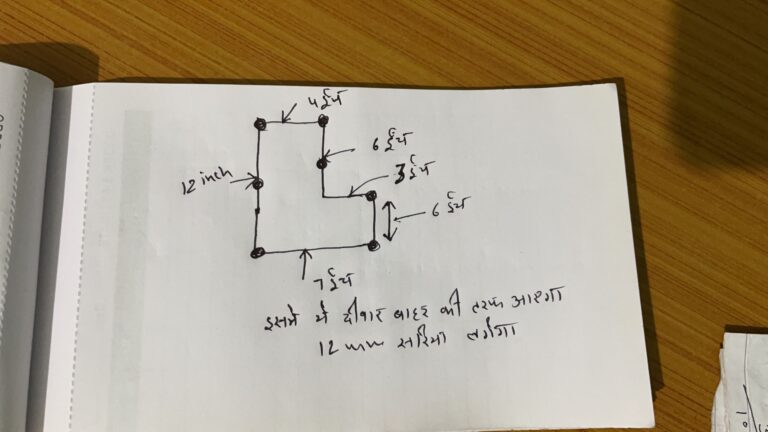 4 इंच
6 इंच
3 इंच
12 inch
6 इंच
7 इंच
इसमे ये दीवार बाहर की तरफ आएगा
12 mm सरिया लगेगा